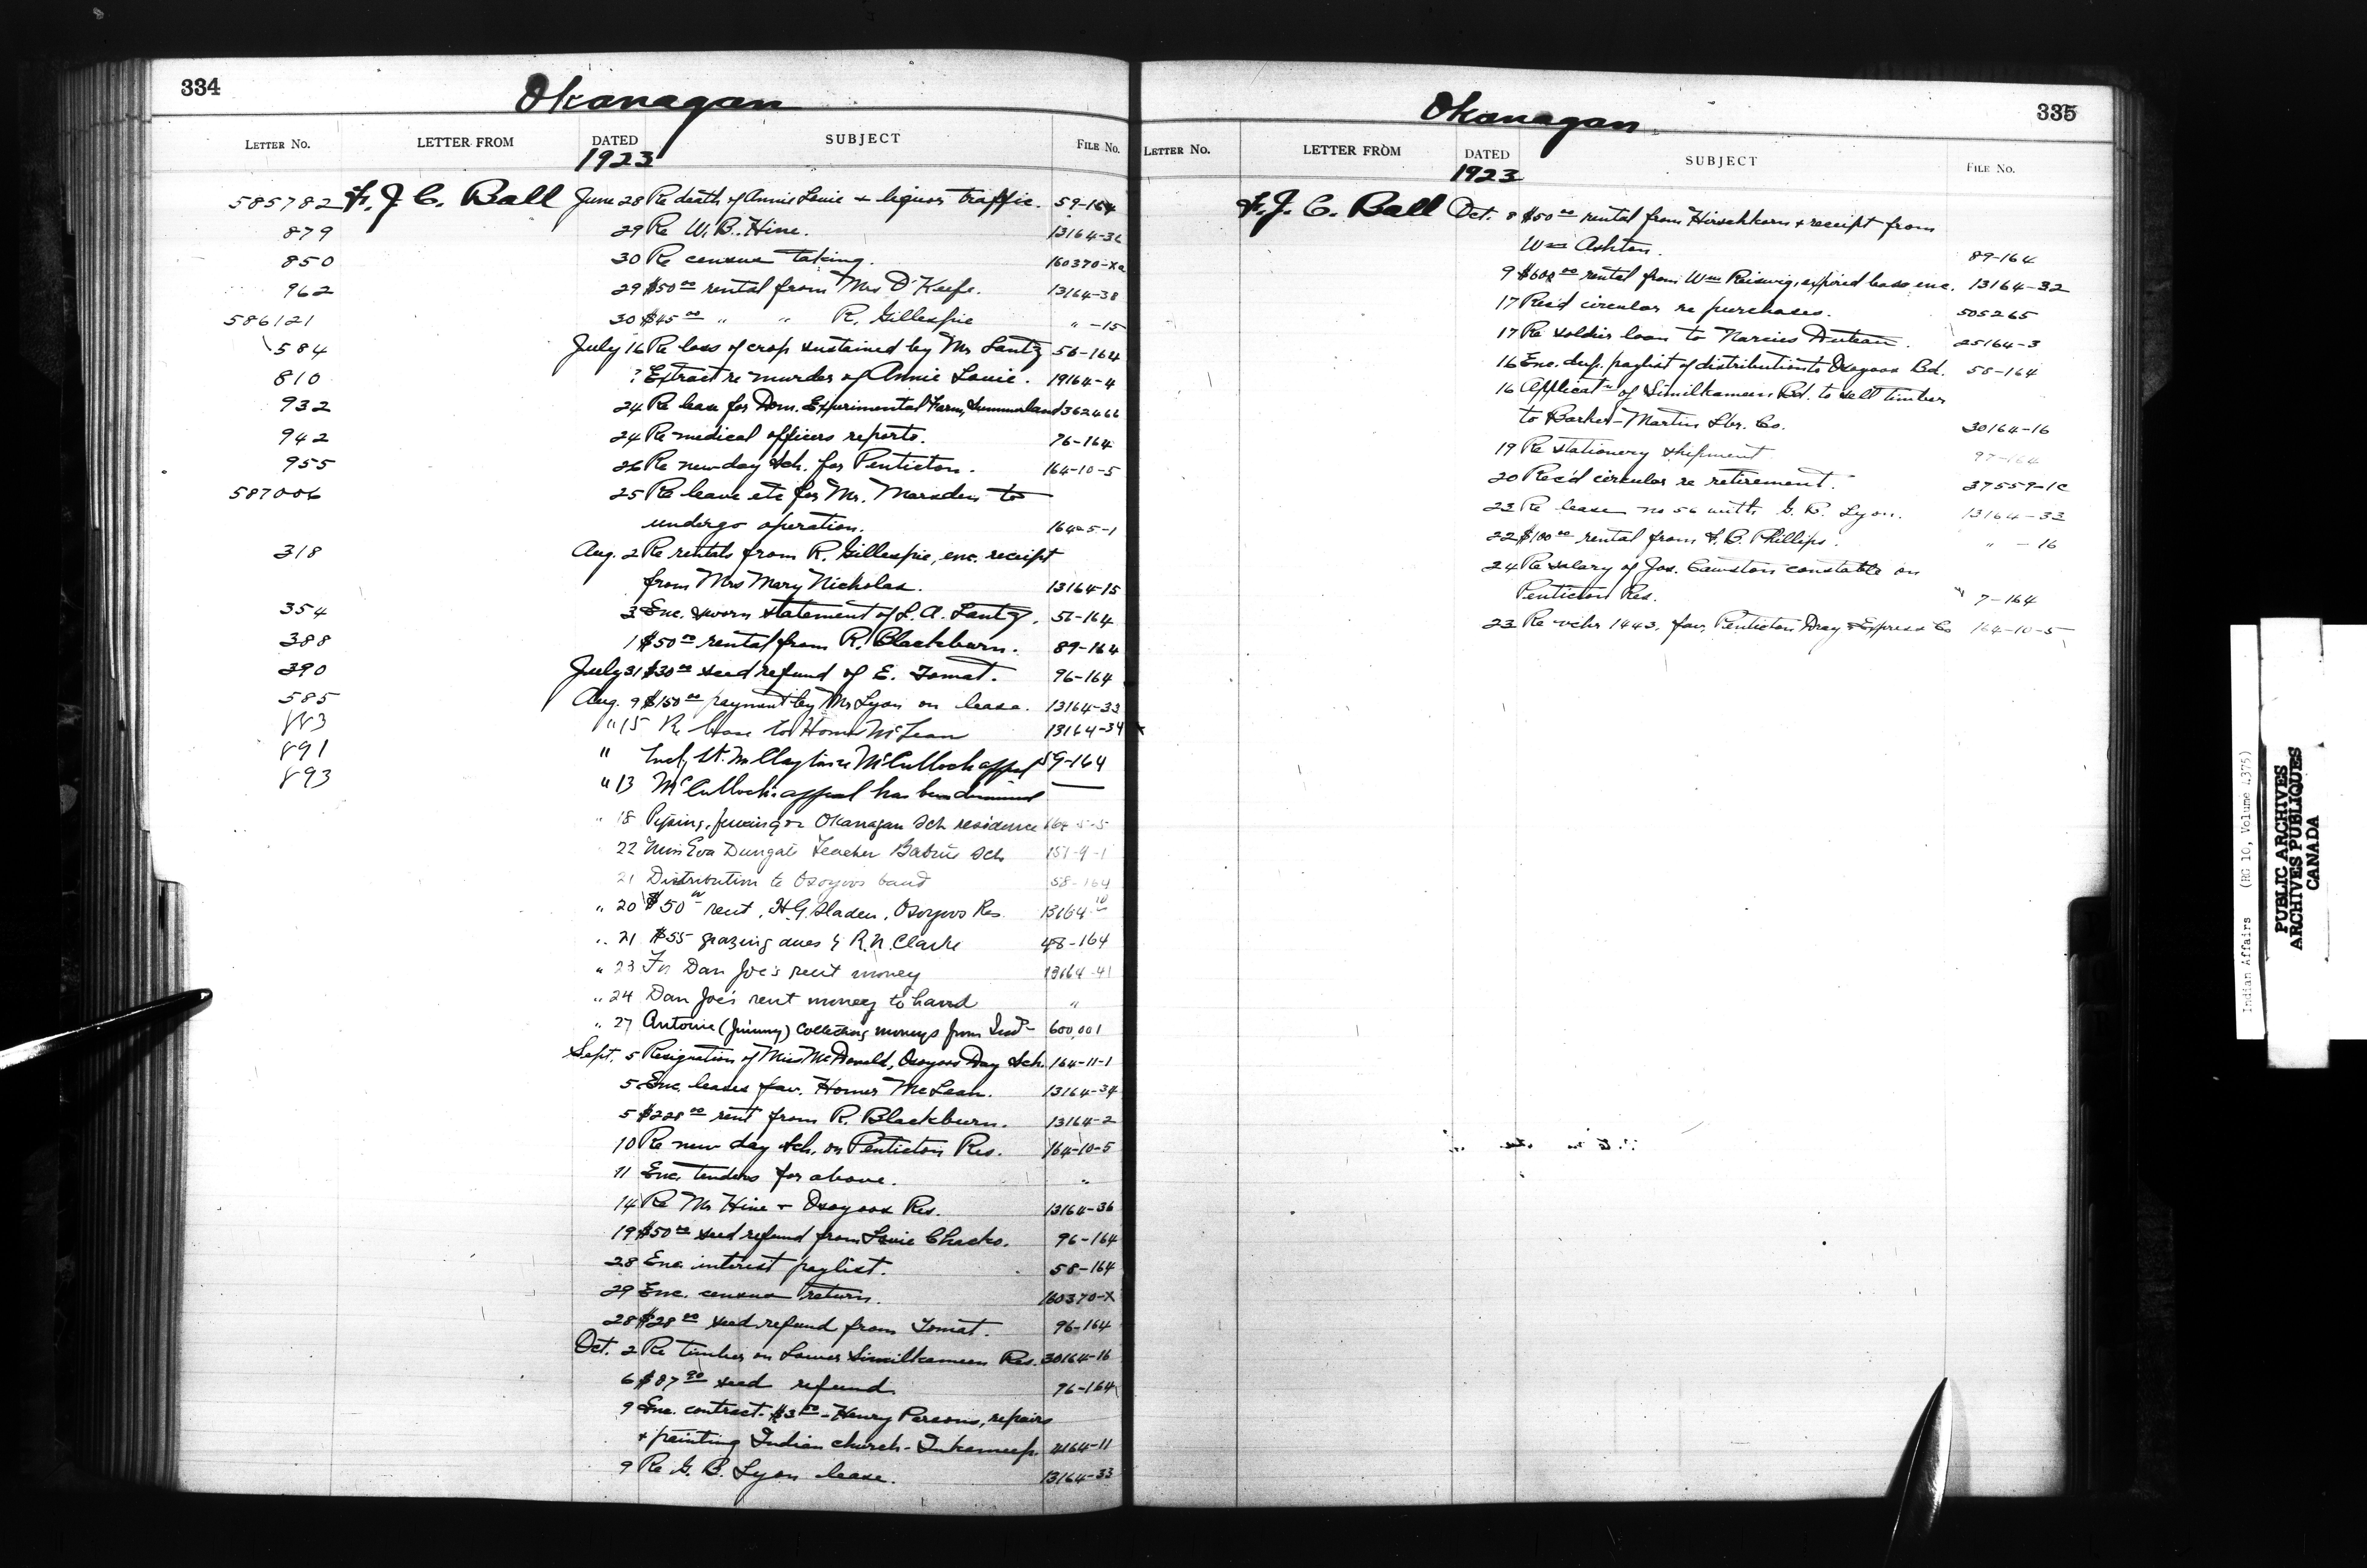 334
Okanagan
LETTER No. LETTER FROM DATED SUBJECT FILE No.
1923
585782 F. J. C. Ball June 28 Re death of Annie Louie + liquor traffic. 59-164
879 29 Re W. B. Hine. 13164-36
850 30 Re census taking. 160370-Xa
962 29 $50 00 rental from Mrs O'Keefe. 13164-38
586121 30 $45 00 " " R. Gillespie " -15
584 July 16 Re loss of crop sustained by Mr Lantz 56-164
810 ? Extract re murder of Annie Louie. 19164-4
932 24 Re lease for Dom. Experimental Farm, Summerland 362466
942 24 Re medical officers reports. 76-164
955 26 Re new day sch. for Penticton. 164-10-5
587006 25 Re leave etc for Mr. Marsden to
undergo operation. 164-5-1
318 Aug. 2 Re rentals from R. Gillespie, enc. receipt
from Mrs Mary Nicholas. 13164-15
354 3 Enc. sworn statement of L. A. Lantz. 56-164
388 1 $50 00 rental from R. Blackburn. 89-164
390 July 31 $30 00 seed refund of E. Tomat. 96-164
585 Aug. 9 $150 00 payment by Mr Lyon on lease. 13164-33
883 " 15 Re lease to Homer McLean 13164-34
891 " McCulloch appeal 59-164
893 " 13 McCulloch's appeal has been dismissed —
" 18 Okanagan Sch residence
22 Miss Eva Dungate Teacher Sch 151-9-1
21 Distribution to Osoyoos band 58-164
" 20 $50 00 rent, H. G. Sladen, Osoyoos Res. 13164-10
" 21 $55 grazing dues R. N. Clarke 48-164
" 23 Dan Joe's rent money 13164-41
" 24 Dan Joe's rent money to hand "
" 27 Antoine (Jimmy) Collecting moneys from Inds 600,001
Sept. 5 Resignation of Miss McDonald, Osoyoos Day Sch. 164-11-1
5 Enc. leases fav. Homer McLean. 13164-34
5 $228 00 rent from R. Blackburn. 13164-2
10 Re new day sch. on Penticton Res. 164-10-5
11 Enc. tenders for above. "
14 Re Mr Hine + Osoyoos Res. 13164-36
19 $50 00 seed refund from Louie 96-164
28 Enc. interest paylist. 58-164
29 Enc. census return. 160370-X
28 $28 00 seed refund from Tomat. 96-164
Oct. 2 Re timber on Lower Similkameen Res. 30164-16
6 $87 90 seed refund 96-164
9 Enc. contract - $3 00 - Henry Parsons, repairs
+ painting Indian church - Inkameep. 4164-11
9 Re G. B. Lyon lease. 13164-33
335
Okanagan
LETTER No. LETTER FROM DATED SUBJECT FILE No.
1923
F. J. C. Ball Oct. 8 $50 00 rental from Hirschkorn + receipt from
Wm Ashton. 89-164
9 $600 00 rental from Wm Reiswig, expired lease enc. 13164-32
17 Rec'd circular re purchases. 505265
17 Re soldier loan to Narcies 25164-3
16 Enc. dup. paylist of distribution to Osoyoos Bd. 58-164
16 Applicatn of Similkameen Bd. to sell timber
to Barker-Martin Lbr. Co. 30164-16
19 Re stationery shipment 97-164
20 Rec'd circular re retirement. 37559-1c
23 Re lease no 56 with G. B. Lyon. 13164-33
22 $100 00 rental from F. B. Phillips. " -16
24 Re salary of Jos. Cawston constable on
Penticton Res. 7-164
23 Re vchr 1443, fav. Penticton Dray + Express Co 164-10-5
Indian Affairs (RG 10, Volume 4375)
PUBLIC ARCHIVES
ARCHIVES PUBLIQUES
CANADA